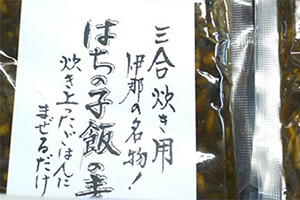 三合炊き用
伊那の名物!
はちの子飯の素
炊き上ったごはんに
まぜるだけ